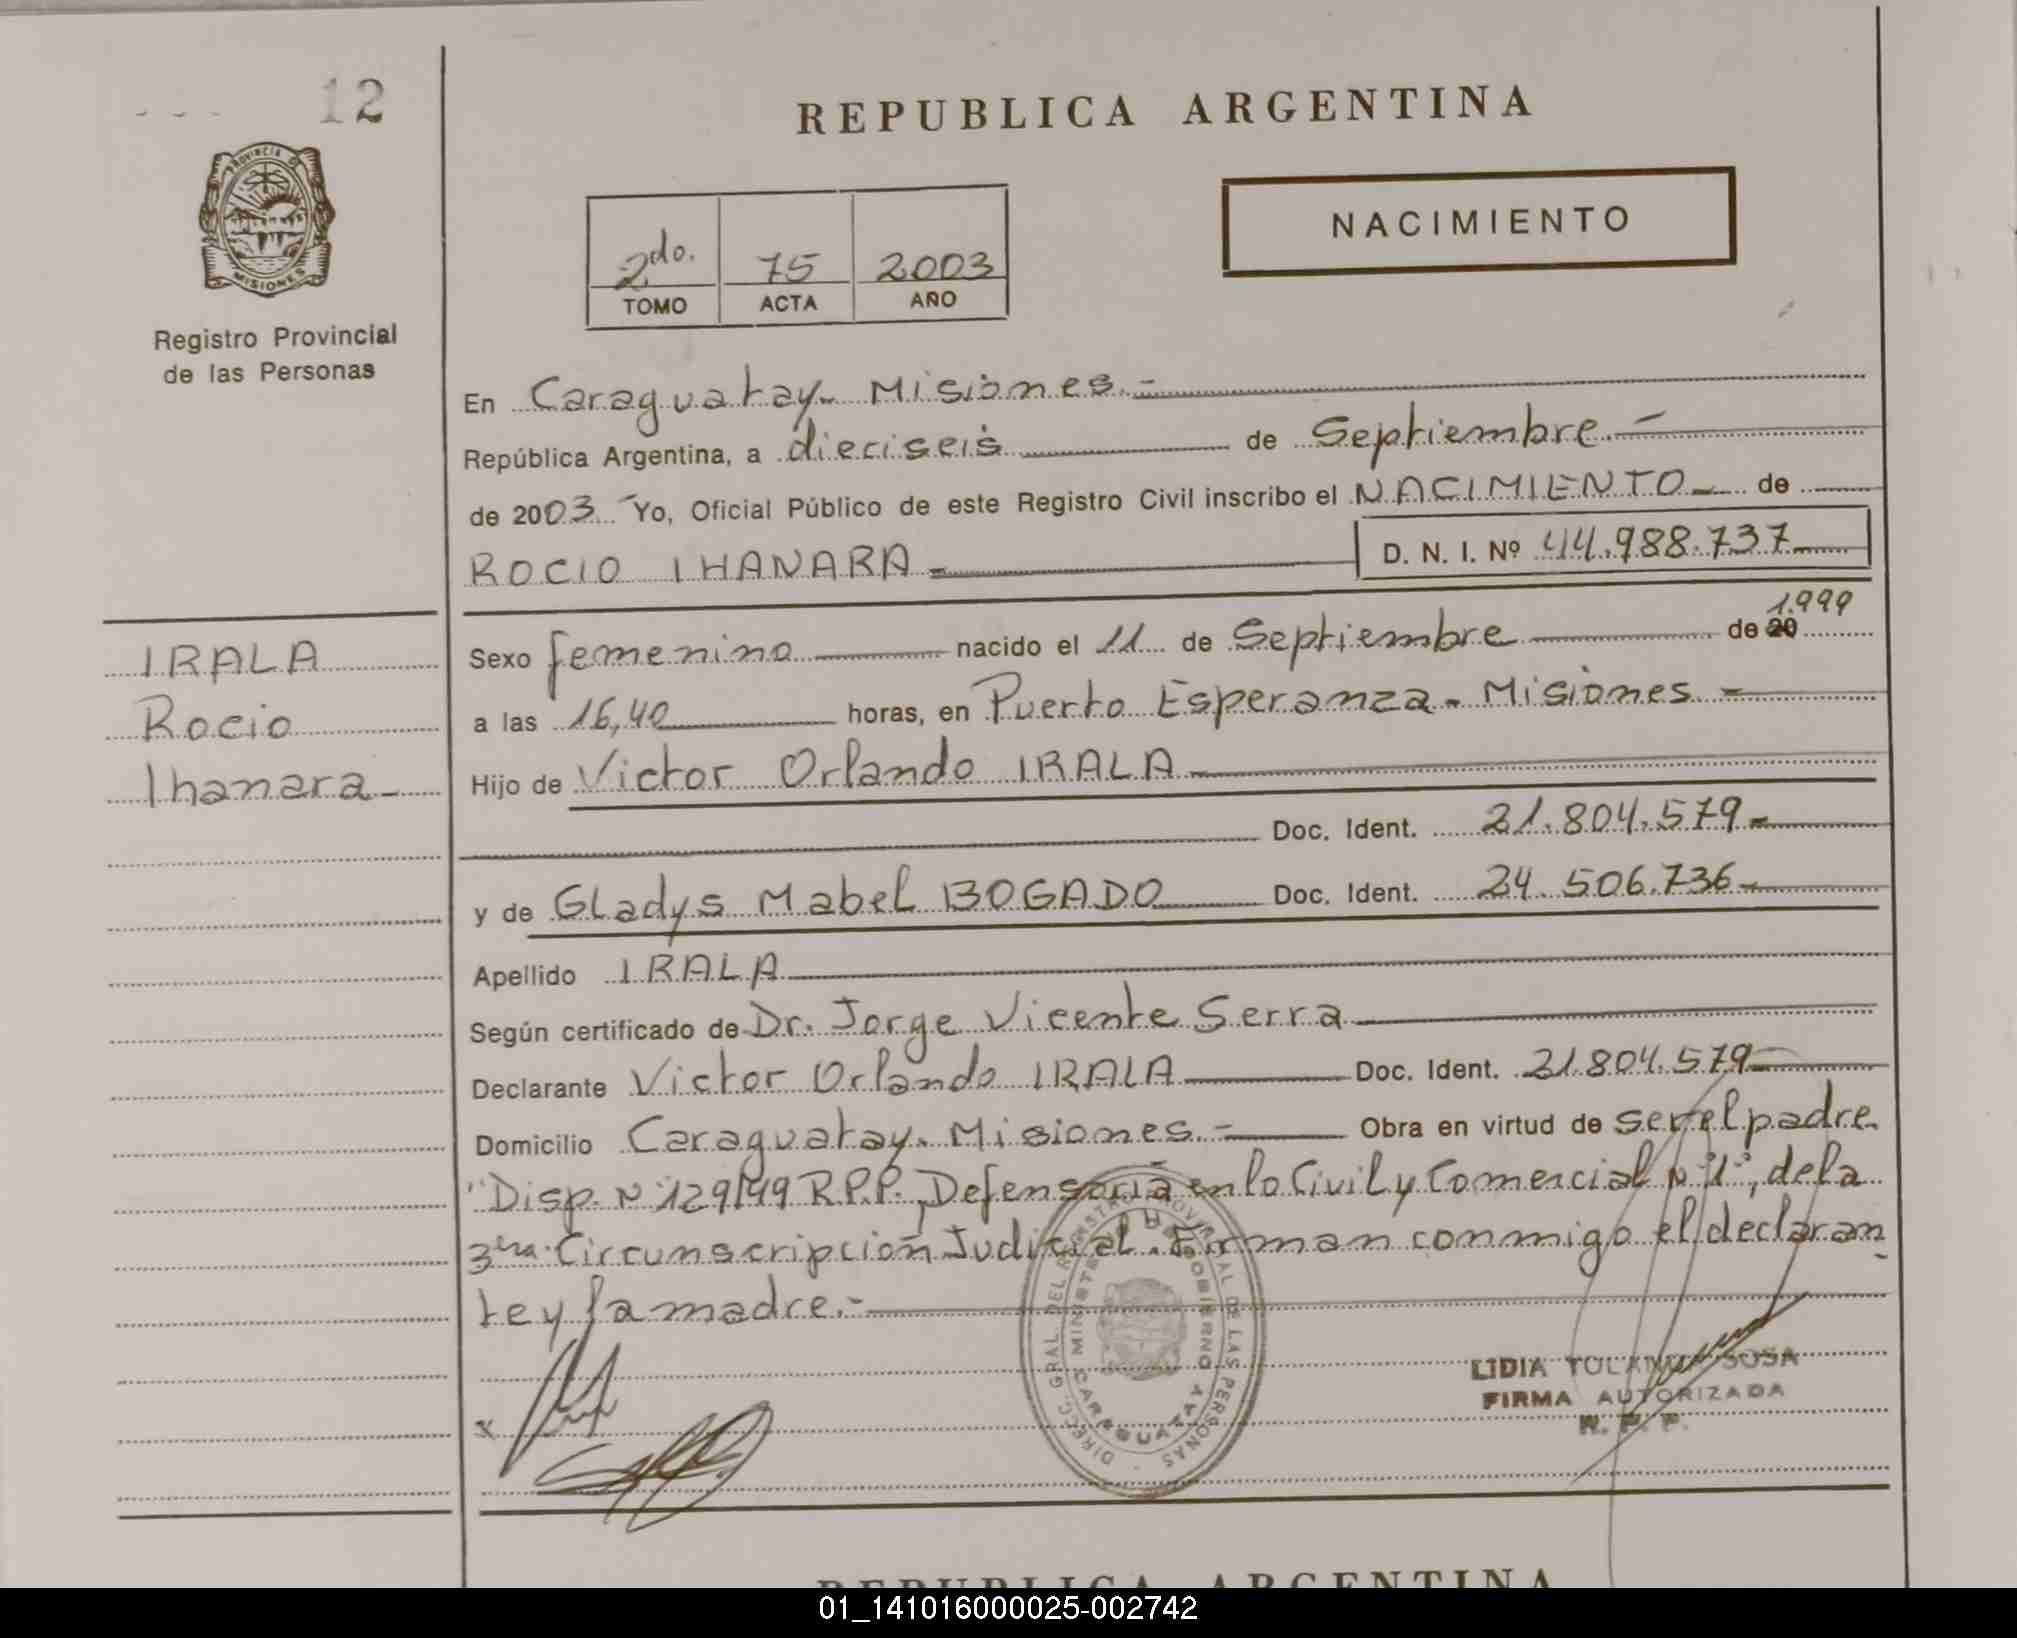 12
REPUBLICA ARGENTINA
PROVINCIA DE
MISIONES
Registro Provincial
de las Personas
2do. 75 2003
TOMO ACTA AÑO
NACIMIENTO
En Caraguatay - Misiones.-
República Argentina, a dieciseis de Septiembre.-
de 2003 Yo, Oficial Público de este Registro Civil inscribo el NACIMIENTO de
ROCIO IHANARA- D. N. I. Nº 44.988.737
IRALA
Rocio
Ihanara-
Sexo femenino nacido el 11 de Septiembre de 20 1.999
a las 16,40 horas, en Puerto Esperanza - Misiones -
Hijo de Victor Orlando IRALA-
Doc. Ident. 21.804.579-
y de Gladys Mabel BOGADO Doc. Ident. 24.506.736-
Apellido IRALA
Según certificado de Dr. Jorge Vicente Serra
Declarante Victor Orlando IRALA Doc. Ident. 21.804.579-
Domicilio Caraguatay. Misiones.- Obra en virtud de ser el padre.
"Disp. N° 129/99 R.P.P., Defensoría en lo Civil y Comercial N°1", de la
3ra. Circunscripción Judicial. Firman conmigo el declaran
te y la madre.-
DIRECC. GRAL. DEL REGISTRO PROVINCIAL DE LAS PERSONAS
MINISTERIO DE GOBIERNO
CARAGUATAY
LIDIA SOSA
FIRMA AUTORIZADA
R. P. P.
REPUBLICA ARGENTINA
01_141016000025-002742